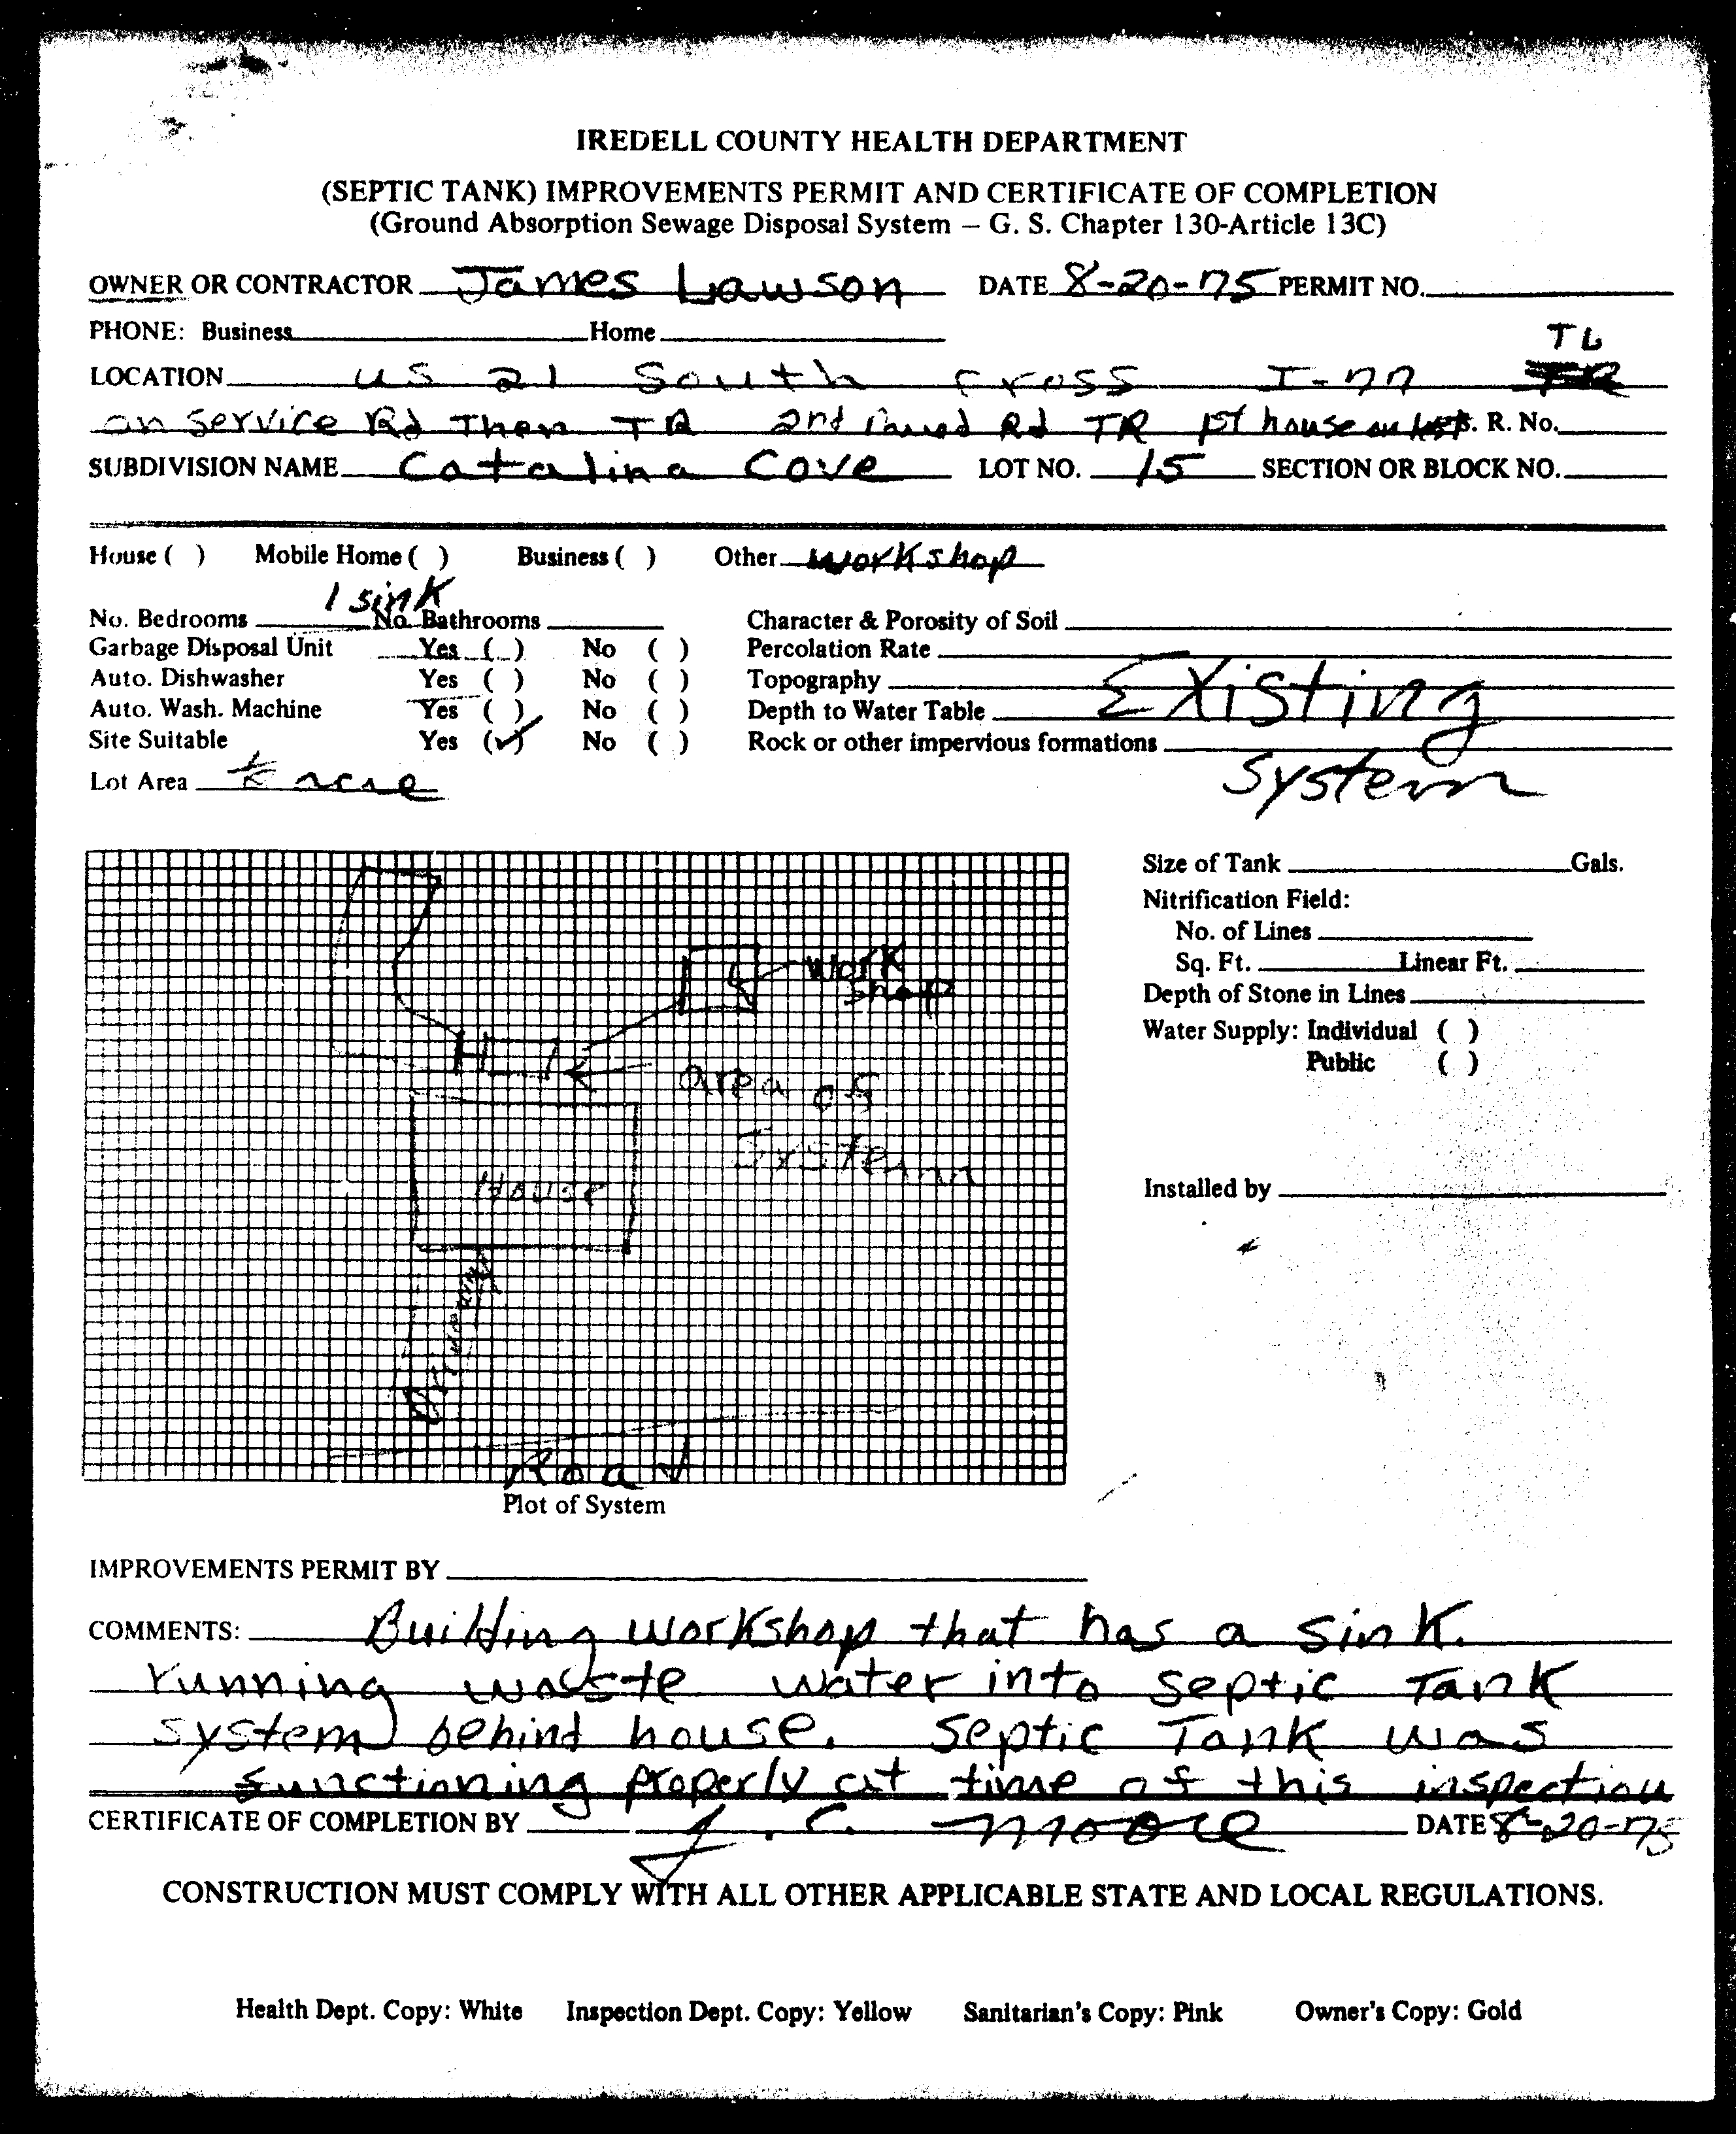 IREDELL COUNTY HEALTH DEPARTMENT
(SEPTIC TANK) IMPROVEMENTS PERMIT AND CERTIFICATE OF COMPLETION
(Ground Absorption Sewage Disposal System – G. S. Chapter 130-Article 13C)
OWNER OR CONTRACTOR James Lawson DATE 8-20-75 PERMIT NO.
PHONE: Business Home
TL
LOCATION US 21 South cross I-77 TR
on service Rd Then TR 2nd Paved Rd TR 1st house on left S. R. No.
SUBDIVISION NAME Catalina Cove LOT NO. 15 SECTION OR BLOCK NO.
House ( ) Mobile Home ( ) Business ( ) Other workshop
1 sink
No. Bedrooms No. Bathrooms Character & Porosity of Soil
Garbage Disposal Unit Yes ( ) No ( ) Percolation Rate
Auto. Dishwasher Yes ( ) No ( ) Topography
Auto. Wash. Machine Yes ( ) No ( ) Depth to Water Table Existing
Site Suitable Yes (✓) No ( ) Rock or other impervious formations
Lot Area acre System
Size of Tank Gals.
Nitrification Field:
No. of Lines
Sq. Ft. Linear Ft.
Depth of Stone in Lines
Water Supply: Individual ( )
Public ( )
Installed by
Work
Shop
area of
System
House
Driveway
Road
Plot of System
IMPROVEMENTS PERMIT BY
COMMENTS: Building workshop that has a sink.
running waste water into septic Tank
system behind house. Septic Tank was
functioning properly at time of this inspection
CERTIFICATE OF COMPLETION BY J. C. Moore DATE 8-20-75
CONSTRUCTION MUST COMPLY WITH ALL OTHER APPLICABLE STATE AND LOCAL REGULATIONS.
Health Dept. Copy: White Inspection Dept. Copy: Yellow Sanitarian's Copy: Pink Owner's Copy: Gold